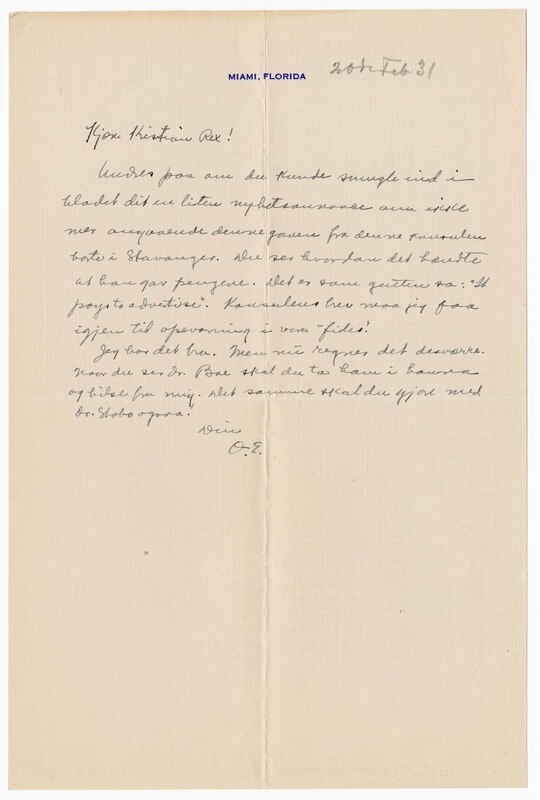 MIAMI, FLORIDA
20de Feb 31
Kjære Kristian Rex!
Undres paa om du kunde smugle ind i
bladet dit en liten nyhetsannonce om ikke
mer angaaende denne gaven fra denne konsulen
borte i Stavanger. Du ser hvordan det hændte
at han gav pengene. Det er som gutten sa: "It
pays to advertise". Konsulens brev maa jeg faa
igjen til opevaring i vor "fides".
Jeg har det bra. Men nu regner det desværre.
Naar du ser dr. Boe skal du ta ham i haanda
og hilse fra mig. Det samme skal du gjøre med
Dr. ogsaa.
Din
O.E.